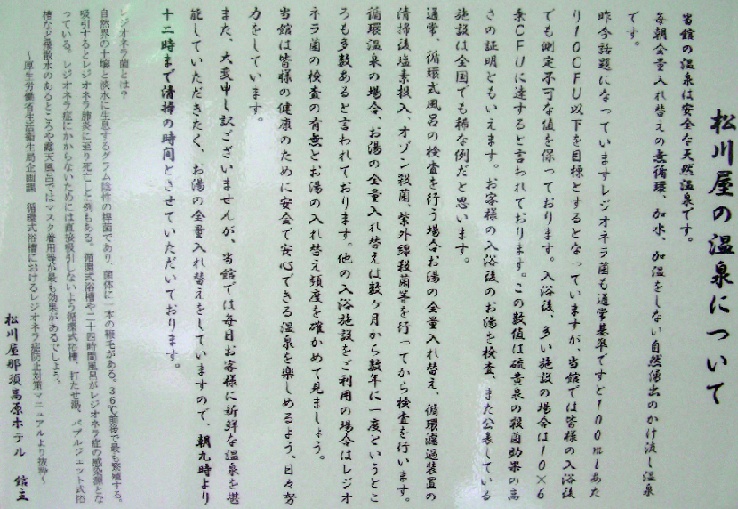 松川屋の温泉について
当館の温泉は安全な天然温泉です。
毎朝全量入れ替えの無循環、加水、加温をしない自然湧出のかけ流し温泉
です。
昨今話題になっていますレジオネラ菌も通常基準ですと100mlあた
り10CFU以下を目標とするとなっていますが、当館では皆様の入浴後
でも測定不可な値を保っております。入浴後、多い施設の場合は10×6
乗CFUに達すると言われております。この数値は硫黄泉の殺菌効果の高
さの証明ともいえます。お客様の入浴後のお湯を検査、また公表している
施設は全国でも稀な例だと思います。
通常、循環式風呂の検査を行う場合お湯の全量入れ替え、循環濾過装置の
清掃後塩素投入、オゾン殺菌、紫外線殺菌等を行ってから検査を行います。
循環温泉の場合、お湯の全量入れ替えは数ヶ月から数年に一度というとこ
ろも多数あると言われております。他の入浴施設をご利用の場合はレジオ
ネラ菌の検査の有無とお湯の入れ替え頻度を確かめて見ましょう。
当館は皆様の健康のために安全で安心できる温泉を楽しめるよう、日々努
力をしています。
また、大変申し訳ございませんが、当館では毎日お客様に新鮮な温泉を堪
能していただきたく、お湯の全量入れ替えをしていますので、朝九時より
十二時まで清掃の時間とさせていただいております。
レジオネラ菌とは?
自然界の土壌と淡水に生息するグラム陰性の桿菌であり、菌体に一本の鞭毛がある。36℃前後で最も繁殖する。
吸引するとレジオネラ肺炎に至り死亡した例もある。循環式浴槽や二十四時間風呂がレジオネラ症の感染源とな
っている。レジオネラ症にかからないためには直接吸引しないよう循環式浴槽、打たせ湯、バブルジェット式浴
槽など撒水のあるところや露天風呂ではマスク着用等が最も効果があるでしょう。
~厚生労働省生活衛生局企画課 循環式浴槽におけるレジオネラ症防止対策マニュアルより抜粋~
松川屋那須高原ホテル 館主